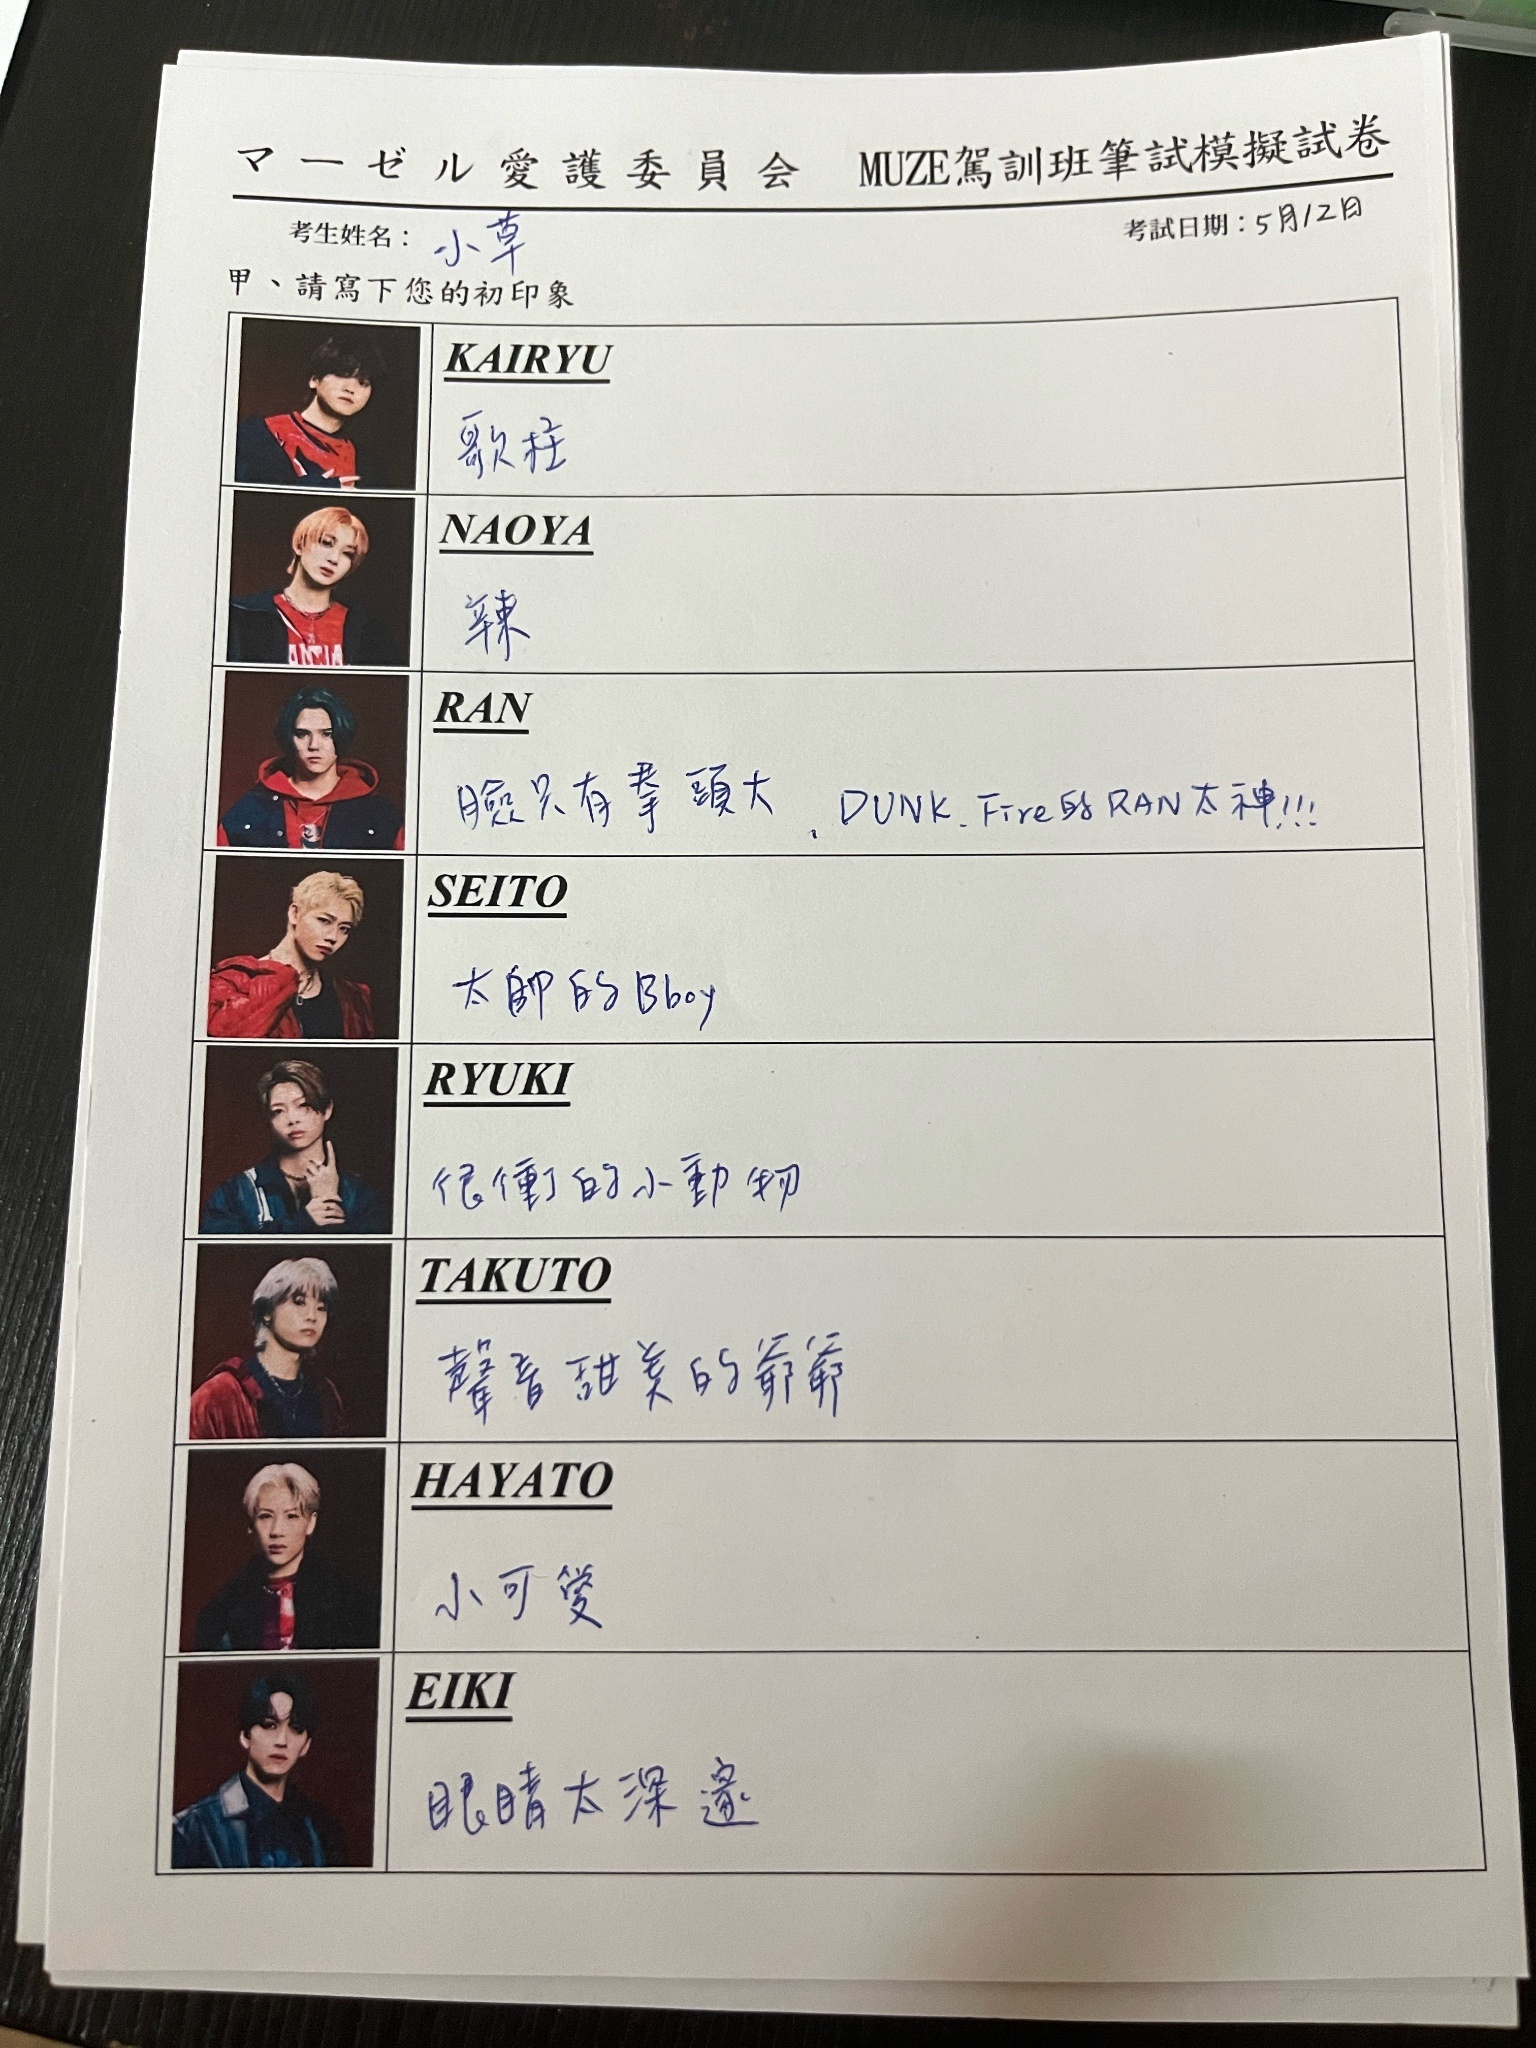 マーゼル愛護委員会 MUZE駕訓班筆試模擬試卷
考生姓名：小草 考試日期：5月12日
甲、請寫下您的初印象
KAIRYU
歌柱
NAOYA
辣
RAN
臉只有拳頭大、DUNK. Fire的RAN太神!!!
SEITO
太帥的Bboy
RYUKI
很衝的小動物
TAKUTO
聲音甜美的爺爺
HAYATO
小可愛
EIKI
眼睛太深邃